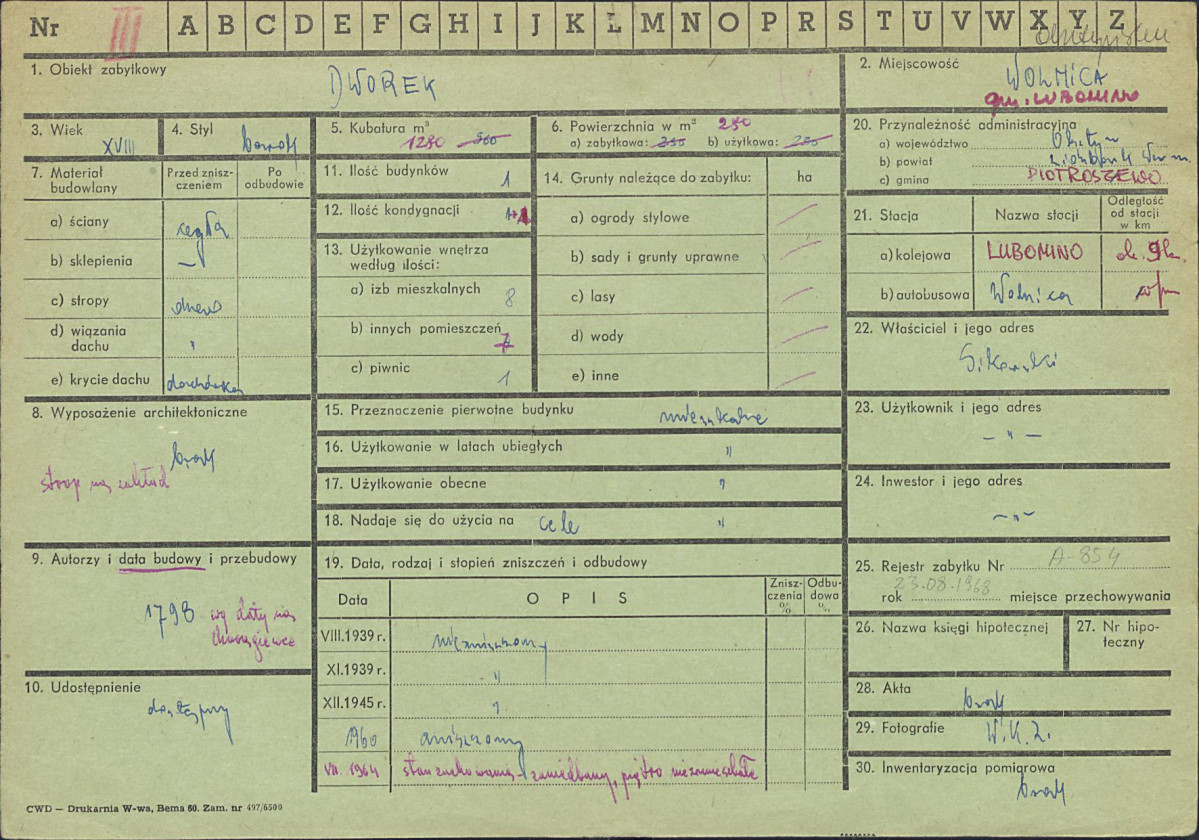 Nr III A B C D E F G H I J K L M N O P R S T U V W X Y Z
1. Obiekt zabytkowy DWOREK
2. Miejscowość WOLNICA
gm. LUBOMINO
3. Wiek XVIII
4. Styl barok
5. Kubatura m³ 1280 960
6. Powierzchnia w m² 250
a) zabytkowa: 255 b) użytkowa: 255
7. Materiał budowlany
Przed zniszczeniem
Po odbudowie
a) ściany cegła
b) sklepienia —
c) stropy drewno
d) wiązania dachu "
e) krycie dachu dachówka
8. Wyposażenie architektoniczne
brak
strop na
9. Autorzy i data budowy i przebudowy
1798 wg daty na
chorągiewce
10. Udostępnienie
dostępny
11. Ilość budynków 1
12. Ilość kondygnacji 1+1
13. Użytkowanie wnętrza
według ilości:
a) izb mieszkalnych 8
b) innych pomieszczeń 7
c) piwnic 1
14. Grunty należące do zabytku: ha
a) ogrody stylowe —
b) sady i grunty uprawne —
c) lasy —
d) wody —
e) inne —
15. Przeznaczenie pierwotne budynku mieszkalne
16. Użytkowanie w latach ubiegłych "
17. Użytkowanie obecne "
18. Nadaje się do użycia na cele "
19. Data, rodzaj i stopień zniszczeń i odbudowy
Data OPIS Zniszczenia % Odbudowa %
VIII.1939 r. niezniszczony
XI.1939 r. "
XII.1945 r. "
1960 zniszczony
VII. 1964 stan zachowania – zaniedbany, piętro niezamieszkałe
20. Przynależność administracyjna
a) województwo Olsztyn
b) powiat Lidzbark Warm.
c) gmina PIOTROSZEWO
21. Stacja Nazwa stacji Odległość od stacji w km
a) kolejowa LUBOMINO ok. 9 km
b) autobusowa Wolnica
22. Właściciel i jego adres
Sikorski
23. Użytkownik i jego adres
— " —
24. Inwestor i jego adres
— " —
25. Rejestr zabytku Nr A-854
rok 23.08.1968 miejsce przechowywania
26. Nazwa księgi hipotecznej
27. Nr hipoteczny
28. Akta brak
29. Fotografie W.K.Z.
30. Inwentaryzacja pomiarowa
brak
CWD — Drukarnia W-wa, Bema 60. Zam. nr 497/6500